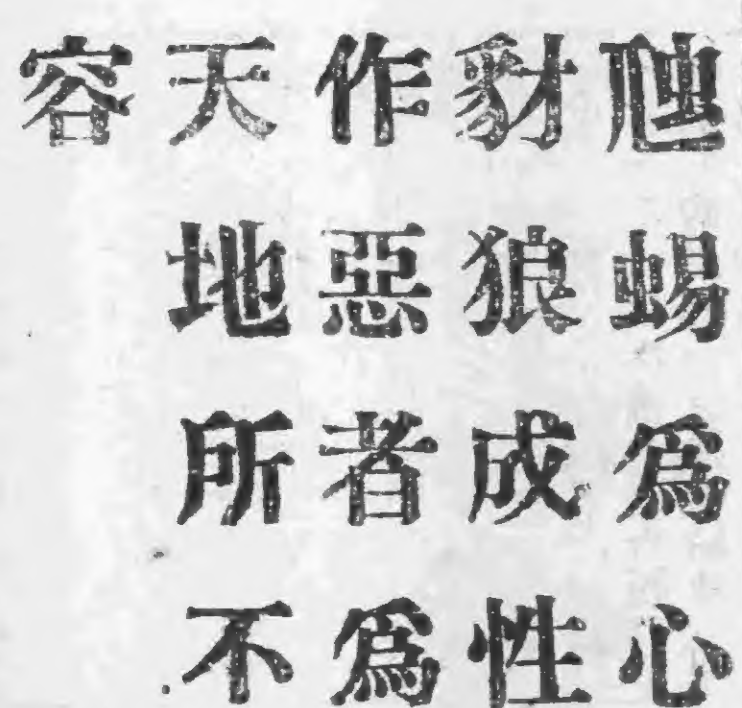 虺蜴爲心
豺狼成性
作惡者爲
天地所不
容